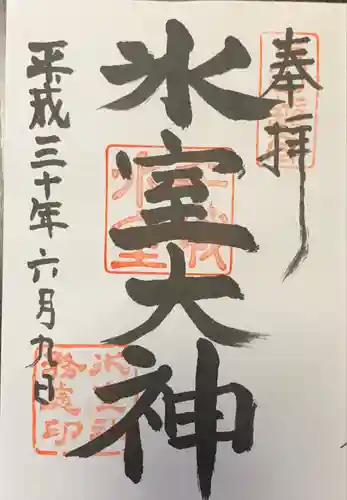 奉拝
氷室大神
平成三十年六月九日